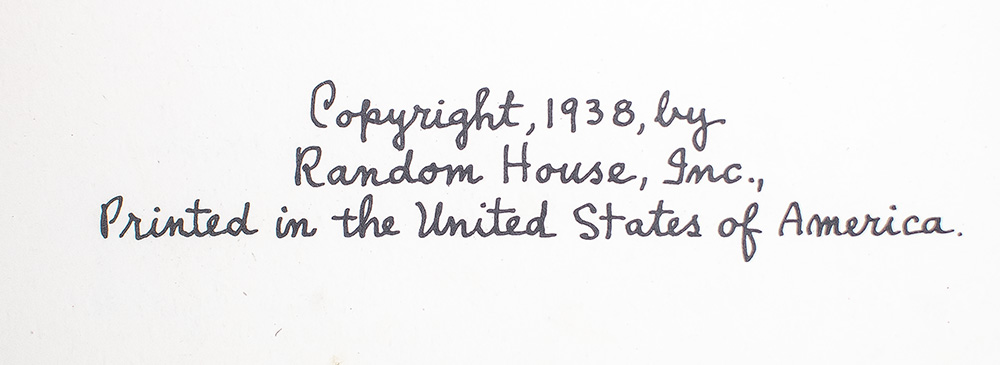 Copyright, 1938, by
Random House, Inc.,
Printed in the United States of America.